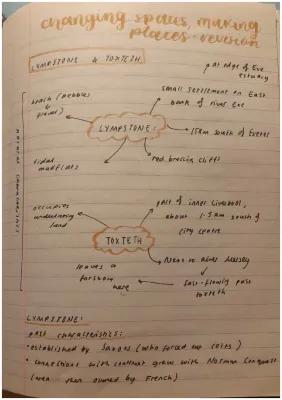 changing spaces, making
places - revision
LYMPSTONE & TOXTETH
at edge of Exe
estuary
beach (pebbles
&
small settlement on East
bank of river Exe
LYMPSTONE:
15km south of Exeter
tidal
mudflats
red breccia cliffs
occupies
undulating
land
part of inner Liverpool,
about 1.5km south of
city centre
TOXTETH
Next to River Mersey
leaves a
foreshore
here
fast-flowing past
toxteth
LYMPSTONE:
past characteristics:
• established by Saxons (who forced out celts)
• connections with continent grew with Norman Conquest
(area then owned by French)